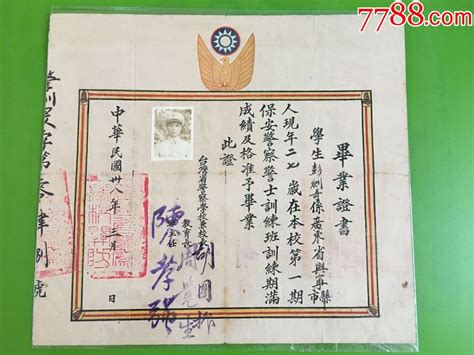 7788.com
畢業證書
學生彭劉奇係廣東省興寧縣市
人現年二七歲在本校第一期
保安警察警士訓練班訓練期滿
成績及格准予畢業
此證
台灣省警察學校兼校長胡國振
教育長
主任陳孝強
中華民國卅八年三月 日